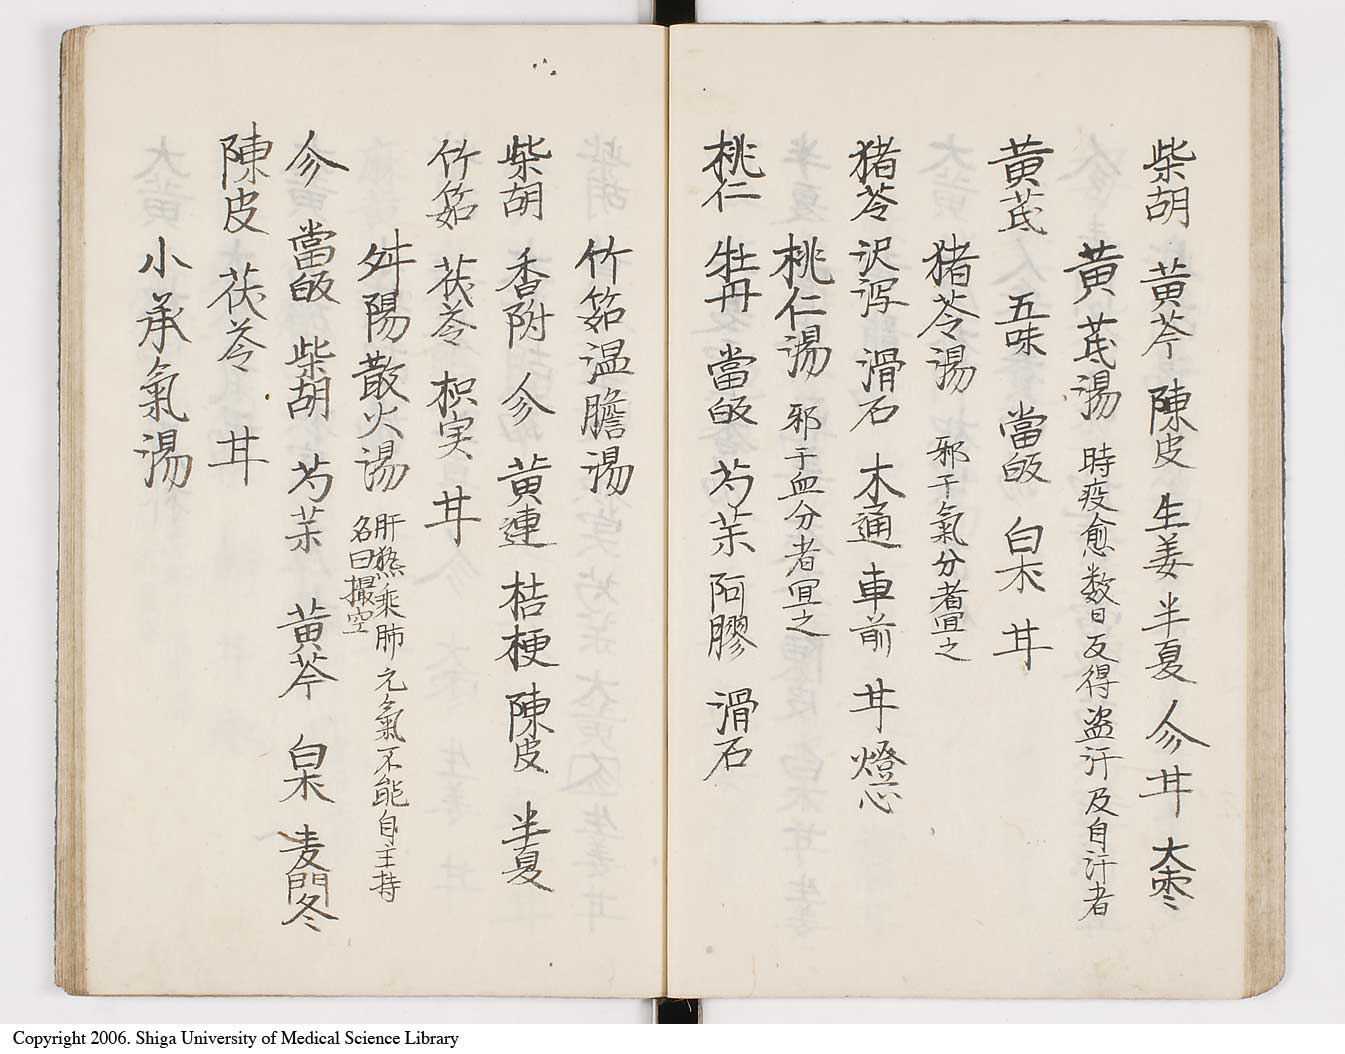 柴胡 黄芩 陳皮 生姜 半夏 㐱 甘 大枣
黄芪湯 時疫愈数日反得盗汗及自汗者
黄芪 五味 當皈 白朮 甘
猪苓湯 邪干氣分者冝之
猪苓 沢泻 滑石 木通 車前 甘 燈心
桃仁湯 邪于血分者冝之
桃仁 牡丹 當皈 芍茱 阿膠 滑石
竹筎温膽湯
柴胡 香附 㐱 黄連 桔梗 陳皮 半夏
竹筎 茯苓 枳実 甘
舛陽散火湯 肝熱乘肺 元氣不能自主持
名曰撮空
㐱 當皈 柴胡 芍茱 黄芩 白朮 麦門冬
陳皮 茯苓 甘
小承氣湯
Copyright 2006. Shiga University of Medical Science Library